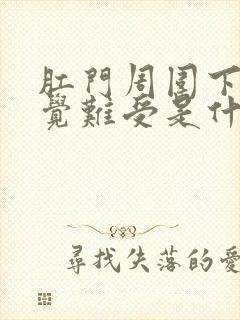 肛門周圍下
覺難受是什
尋找失落的愛